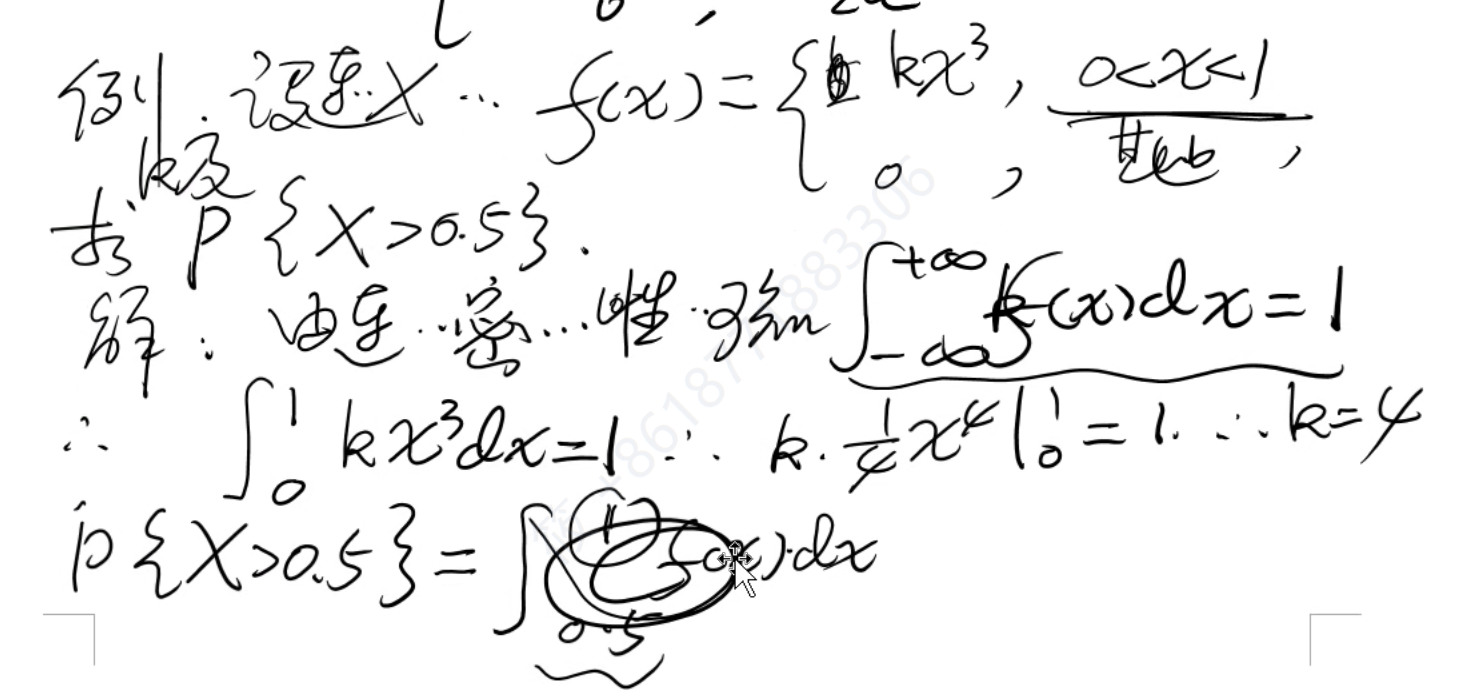 例.设连X… f(x)={kx³, 0<x<1
0, 其他,
k及
求P{X>0.5}.
解:由连…密…性…可知∫_{-∞}^{+∞}f(x)dx=1
∴ ∫_0^1 kx³dx=1 ∴ k·1/4x⁴|_0^1=1.∴k=4
P{X>0.5}=∫_{0.5}^{1}f(x)·dx